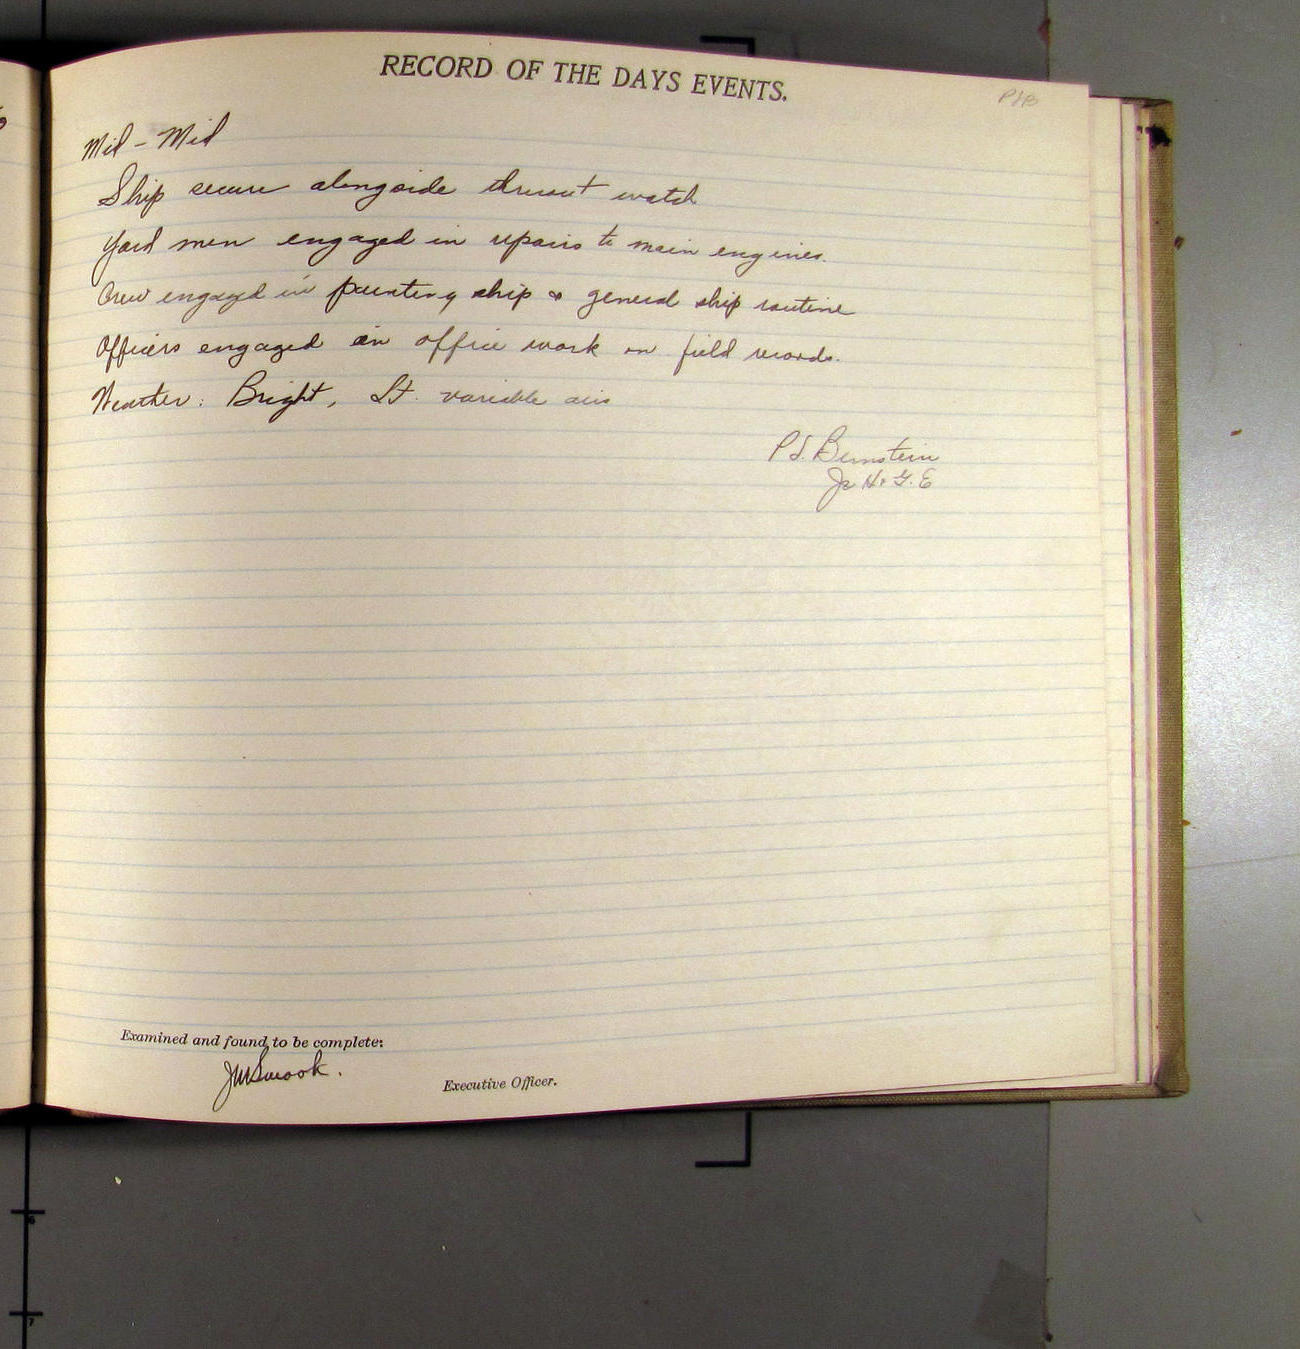 RECORD OF THE DAYS EVENTS.
PSB
Mid - Mid
Ship secure alongside thruout watch
Yard men engaged in repairs to main engines.
Crew engaged in painting ship & general ship routine
Officers engaged in office work on field records.
Weather: Bright, Lt. variable airs
P.S. Bernstein
Jr. H. & G. E
Examined and found to be complete:
JM Smook.
Executive Officer.
6
7